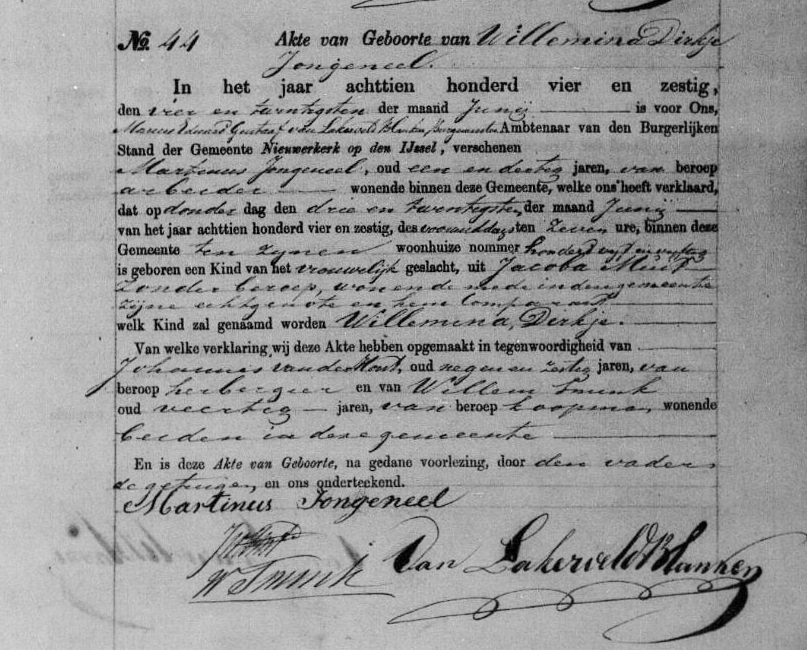 No. 44 Akte van Geboorte van Willemina Dirkje
Jongeneel.
In het jaar achttien honderd vier en zestig,
den vier en twintigsten der maand Junij is voor Ons,
Marius Eduard Gustaaf van Lakerveld Blanken, Burgemeester Ambtenaar van den Burgerlijken
Stand der Gemeente Nieuwerkerk op den IJssel, verschenen
Martinus Jongeneel, oud een en dertig jaren, van beroep
arbeider wonende binnen deze Gemeente, welke ons heeft verklaard,
dat op donder dag den drie en twintigsten, der maand Junij
van het jaar achttien honderd vier en zestig, des voormiddags ten zeven ure, binnen deze
Gemeente ten zynen woonhuize nommer honderd vijf en
is geboren een Kind van het vrouwelijk geslacht, uit Jacoba
zonder beroep, wonende mede in deze gemeente
zijne echtgenote en hem Comparant
welk Kind zal genaamd worden Willemina, Dirkje.
Van welke verklaring wij deze Akte hebben opgemaakt in tegenwoordigheid van
Johannis van der Hout, oud negen en zestig jaren, van
beroep herbergier en van Willem Smink
oud veertig jaren, van beroep koopman, wonende
beiden in deze gemeente
En is deze Akte van Geboorte, na gedane voorlezing, door den vader
de getuigen, en ons onderteekend.
Martinus Jongeneel
W Smink Van Lakerveld Blanken